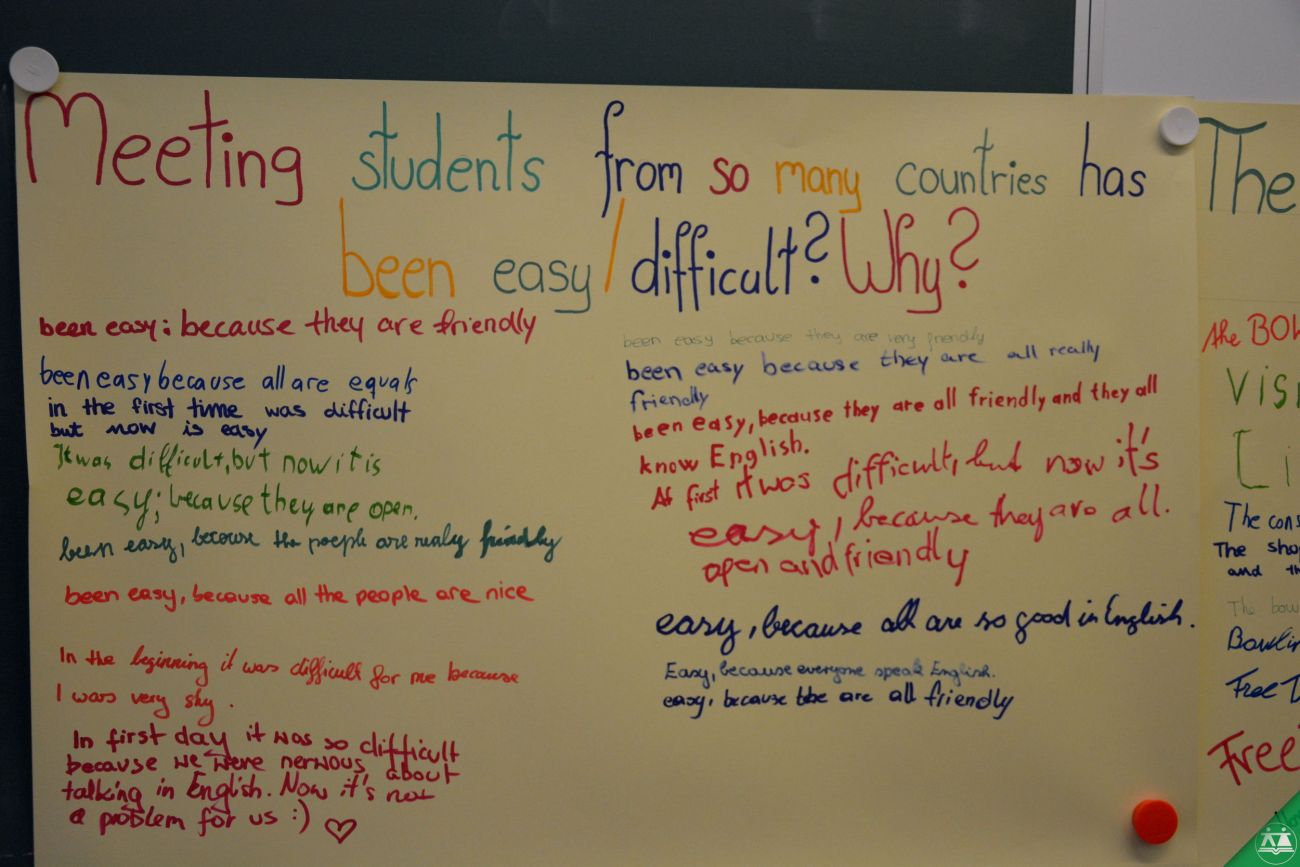 Meeting students from so many countries has
been easy / difficult? Why?
been easy: because they are friendly
been easy because all are equals
in the first time was difficult
but now is easy
It was difficult, but now it is
easy; because they are open.
been easy, becouse the poeple are realy friendly
been easy, because all the people are nice
In the beginning it was difficult for me because
I was very shy.
In first day it was so difficult
because we were nervous about
talking in English. Now it's not
a problem for us :) ♡
been easy because they are very friendly
been easy because they are all really
friendly
been easy, because they are all friendly and they all
know English.
At first it was difficult, but now it's
easy, because they are all.
open and friendly
easy, because all are so good in English.
Easy, because everyone speak English.
easy, because are all friendly
The
the BOW
Vis
Li
The cons
The shop
and th
The bow
Bowlin
Free T
Free